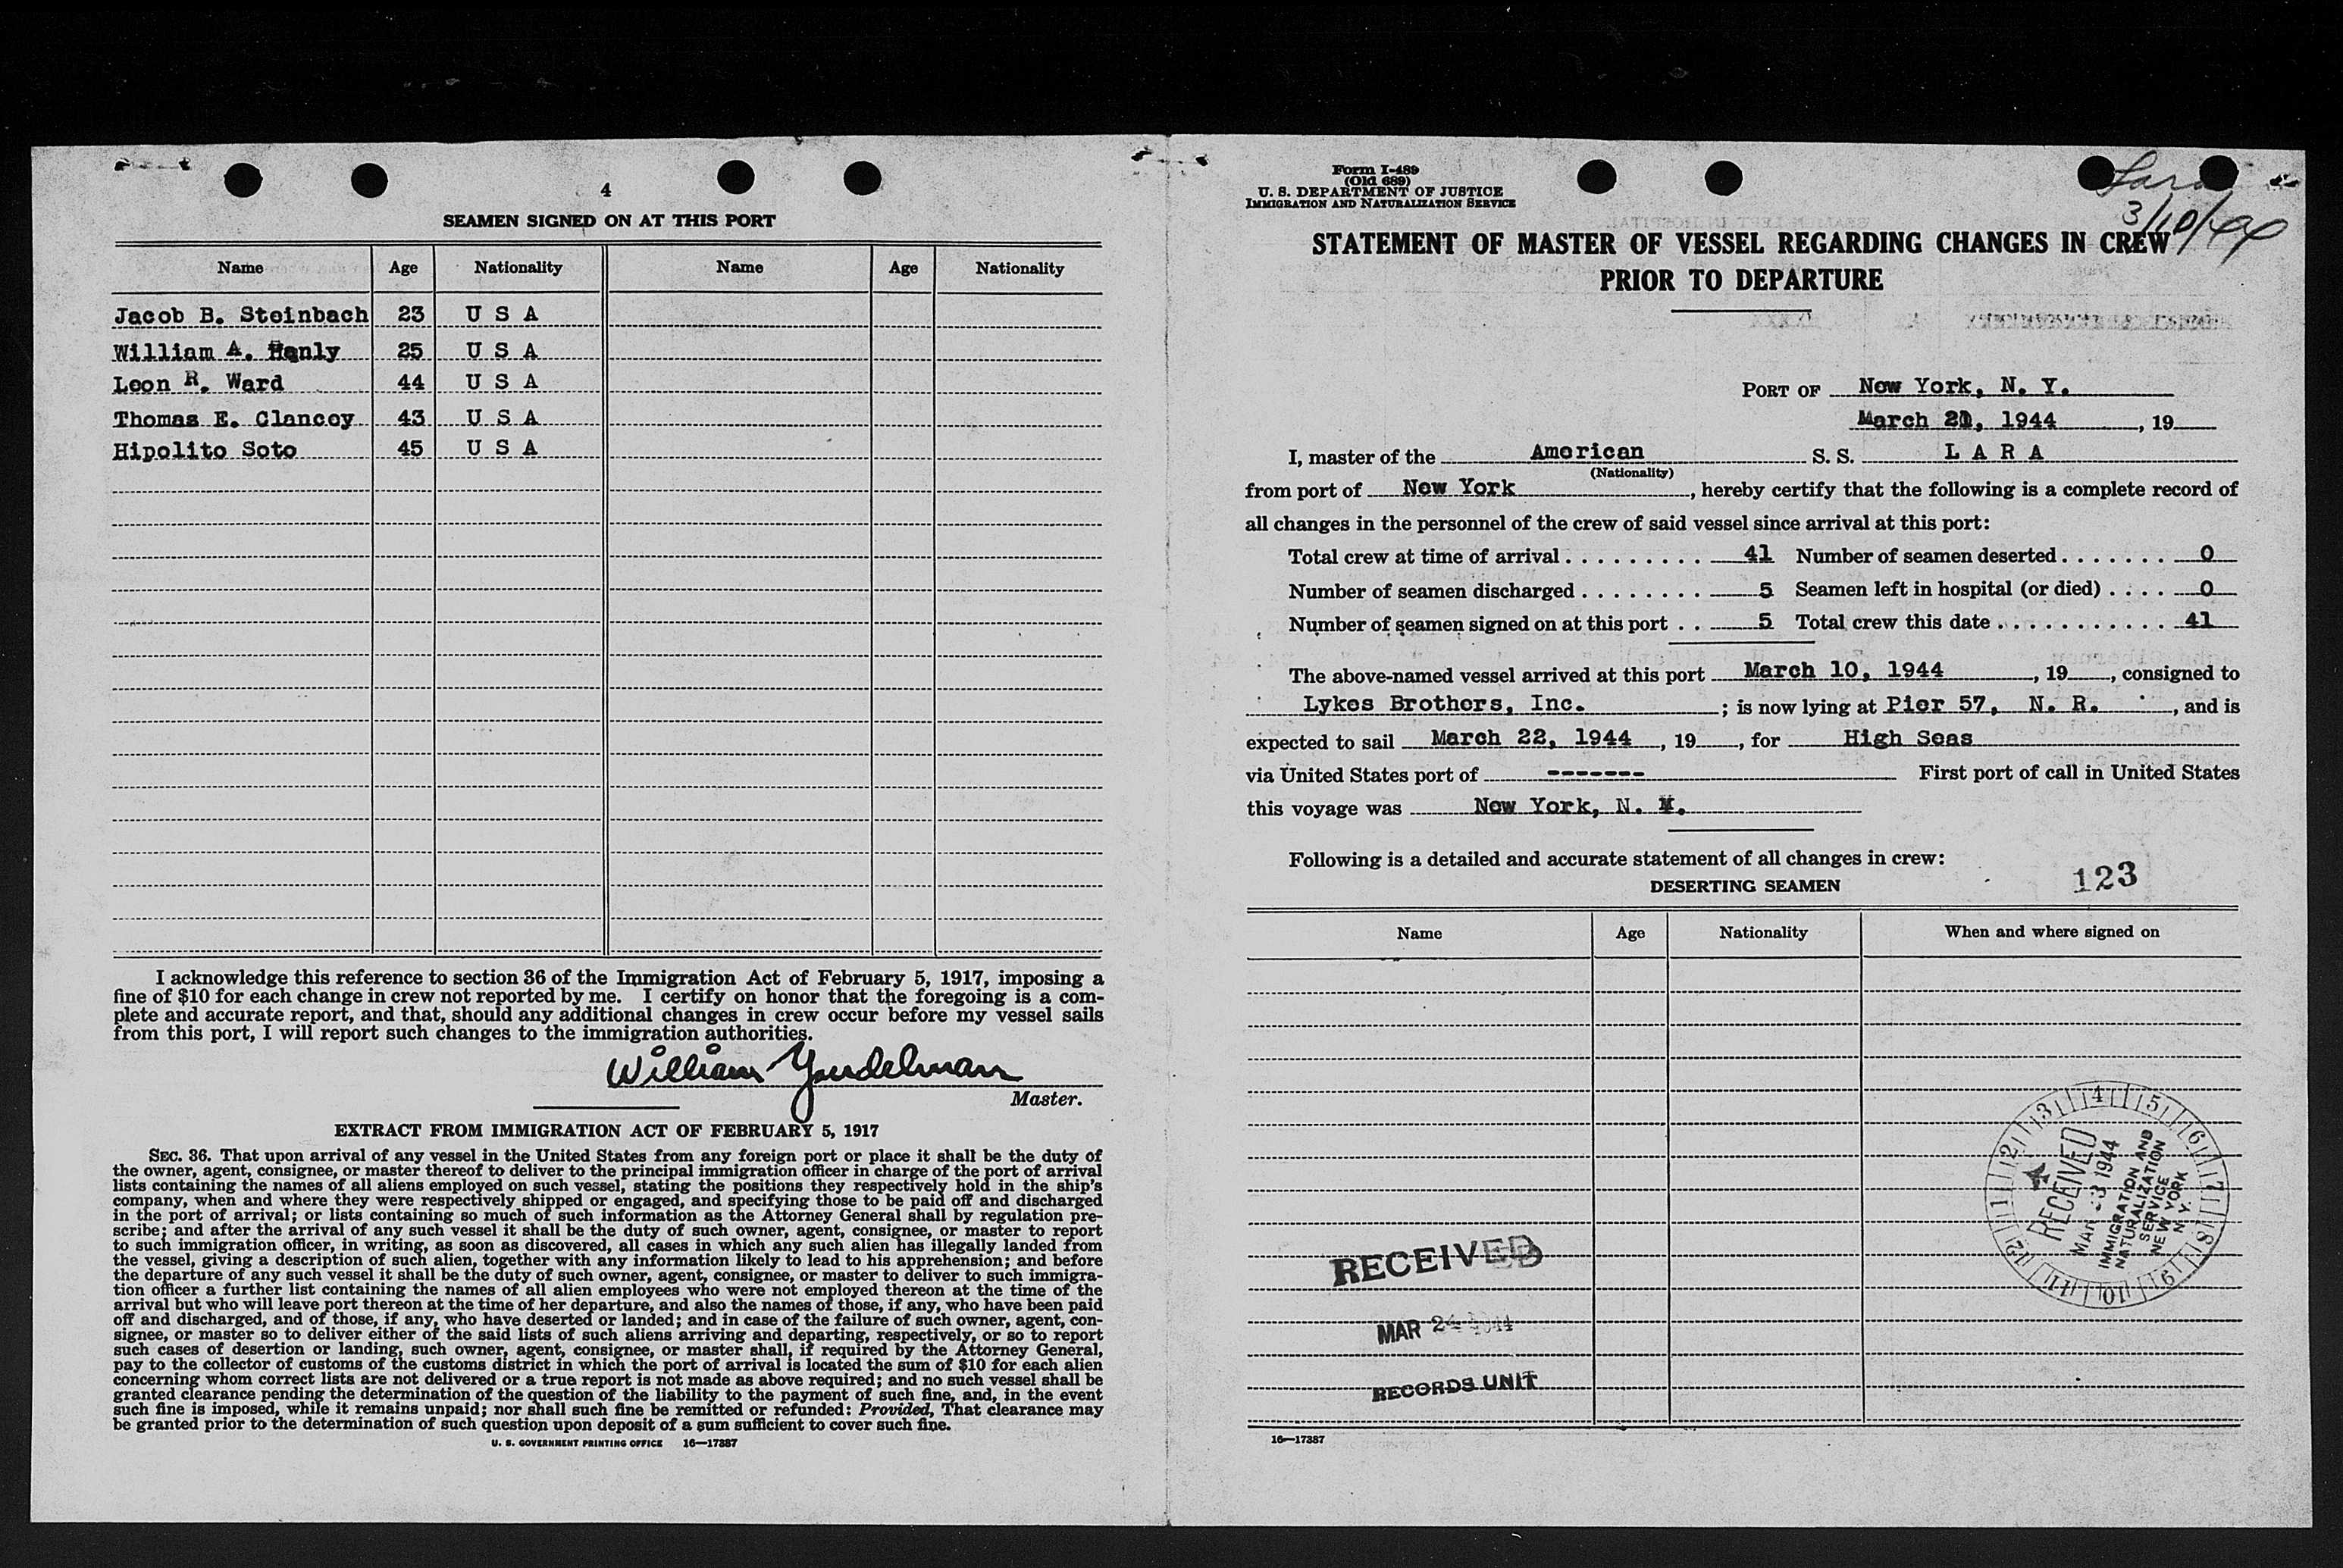 4
SEAMEN SIGNED ON AT THIS PORT
Name Age Nationality Name Age Nationality
Jacob B. Steinbach 23 U S A
William A. Henly 25 U S A
Leon R. Ward 44 U S A
Thomas E. Clancey 43 U S A
Hipolito Soto 45 U S A
I acknowledge this reference to section 36 of the Immigration Act of February 5, 1917, imposing a
fine of $10 for each change in crew not reported by me. I certify on honor that the foregoing is a com-
plete and accurate report, and that, should any additional changes in crew occur before my vessel sails
from this port, I will report such changes to the immigration authorities.
William Yaudelman
Master.
EXTRACT FROM IMMIGRATION ACT OF FEBRUARY 5, 1917
SEC. 36. That upon arrival of any vessel in the United States from any foreign port or place it shall be the duty of
the owner, agent, consignee, or master thereof to deliver to the principal immigration officer in charge of the port of arrival
lists containing the names of all aliens employed on such vessel, stating the positions they respectively hold in the ship's
company, when and where they were respectively shipped or engaged, and specifying those to be paid off and discharged
in the port of arrival; or lists containing so much of such information as the Attorney General shall by regulation pre-
scribe; and after the arrival of any such vessel it shall be the duty of such owner, agent, consignee, or master to report
to such immigration officer, in writing, as soon as discovered, all cases in which any such alien has illegally landed from
the vessel, giving a description of such alien, together with any information likely to lead to his apprehension; and before
the departure of any such vessel it shall be the duty of such owner, agent, consignee, or master to deliver to such immigra-
tion officer a further list containing the names of all alien employees who were not employed thereon at the time of the
arrival but who will leave port thereon at the time of her departure, and also the names of those, if any, who have been paid
off and discharged, and of those, if any, who have deserted or landed; and in case of the failure of such owner, agent, con-
signee, or master so to deliver either of the said lists of such aliens arriving and departing, respectively, or so to report
such cases of desertion or landing, such owner, agent, consignee, or master shall, if required by the Attorney General,
pay to the collector of customs of the customs district in which the port of arrival is located the sum of $10 for each alien
concerning whom correct lists are not delivered or a true report is not made as above required; and no such vessel shall be
granted clearance pending the determination of the question of the liability to the payment of such fine, and, in the event
such fine is imposed, while it remains unpaid; nor shall such fine be remitted or refunded: Provided, That clearance may
be granted prior to the determination of such question upon deposit of a sum sufficient to cover such fine.
U. S. GOVERNMENT PRINTING OFFICE 16—17387
Form I-489
(Old 689)
U. S. DEPARTMENT OF JUSTICE
IMMIGRATION AND NATURALIZATION SERVICE
Lara
3/10/44
STATEMENT OF MASTER OF VESSEL REGARDING CHANGES IN CREW
PRIOR TO DEPARTURE
PORT OF New York, N. Y.
March 21, 1944, 19
I, master of the American S. S. L A R A
(Nationality)
from port of New York, hereby certify that the following is a complete record of
all changes in the personnel of the crew of said vessel since arrival at this port:
Total crew at time of arrival 41 Number of seamen deserted 0
Number of seamen discharged 5 Seamen left in hospital (or died) 0
Number of seamen signed on at this port 5 Total crew this date 41
The above-named vessel arrived at this port March 10, 1944, 19, consigned to
Lykes Brothers, Inc.; is now lying at Pier 57, N. R., and is
expected to sail March 22, 1944, 19, for High Seas
via United States port of ------- First port of call in United States
this voyage was New York, N. Y.
Following is a detailed and accurate statement of all changes in crew:
123
DESERTING SEAMEN
Name Age Nationality When and where signed on
1 2 3 4 5 6 7 8 9 10 11 12
RECEIVED
MAR 23 1944
IMMIGRATION AND
NATURALIZATION
SERVICE
NEW YORK
N. Y.
RECEIVED
MAR 24 1944
RECORDS UNIT
16—17387